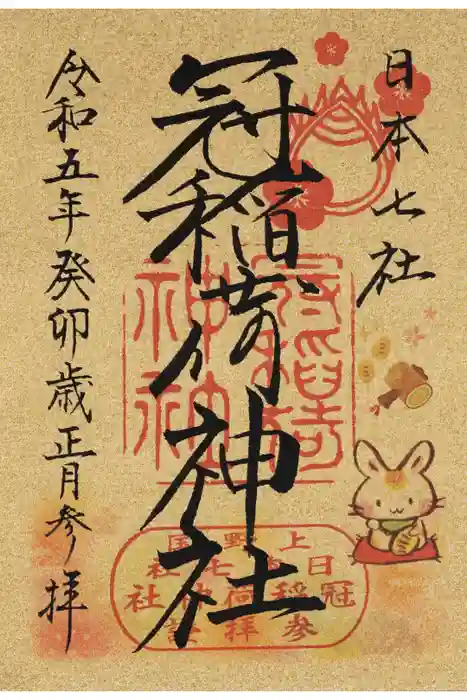 日本七社
冠稲荷神社
令和五年癸卯歳正月参拝
冠稲荷
神社
上野国
日本七社
冠稲荷神社
参拝証